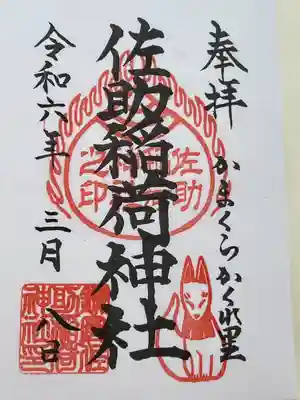 奉拝
かまくらかくれ里
佐助稲荷神社
令和六年
三月
八日
佐助
稲荷
之印
佐助
稲荷
神社